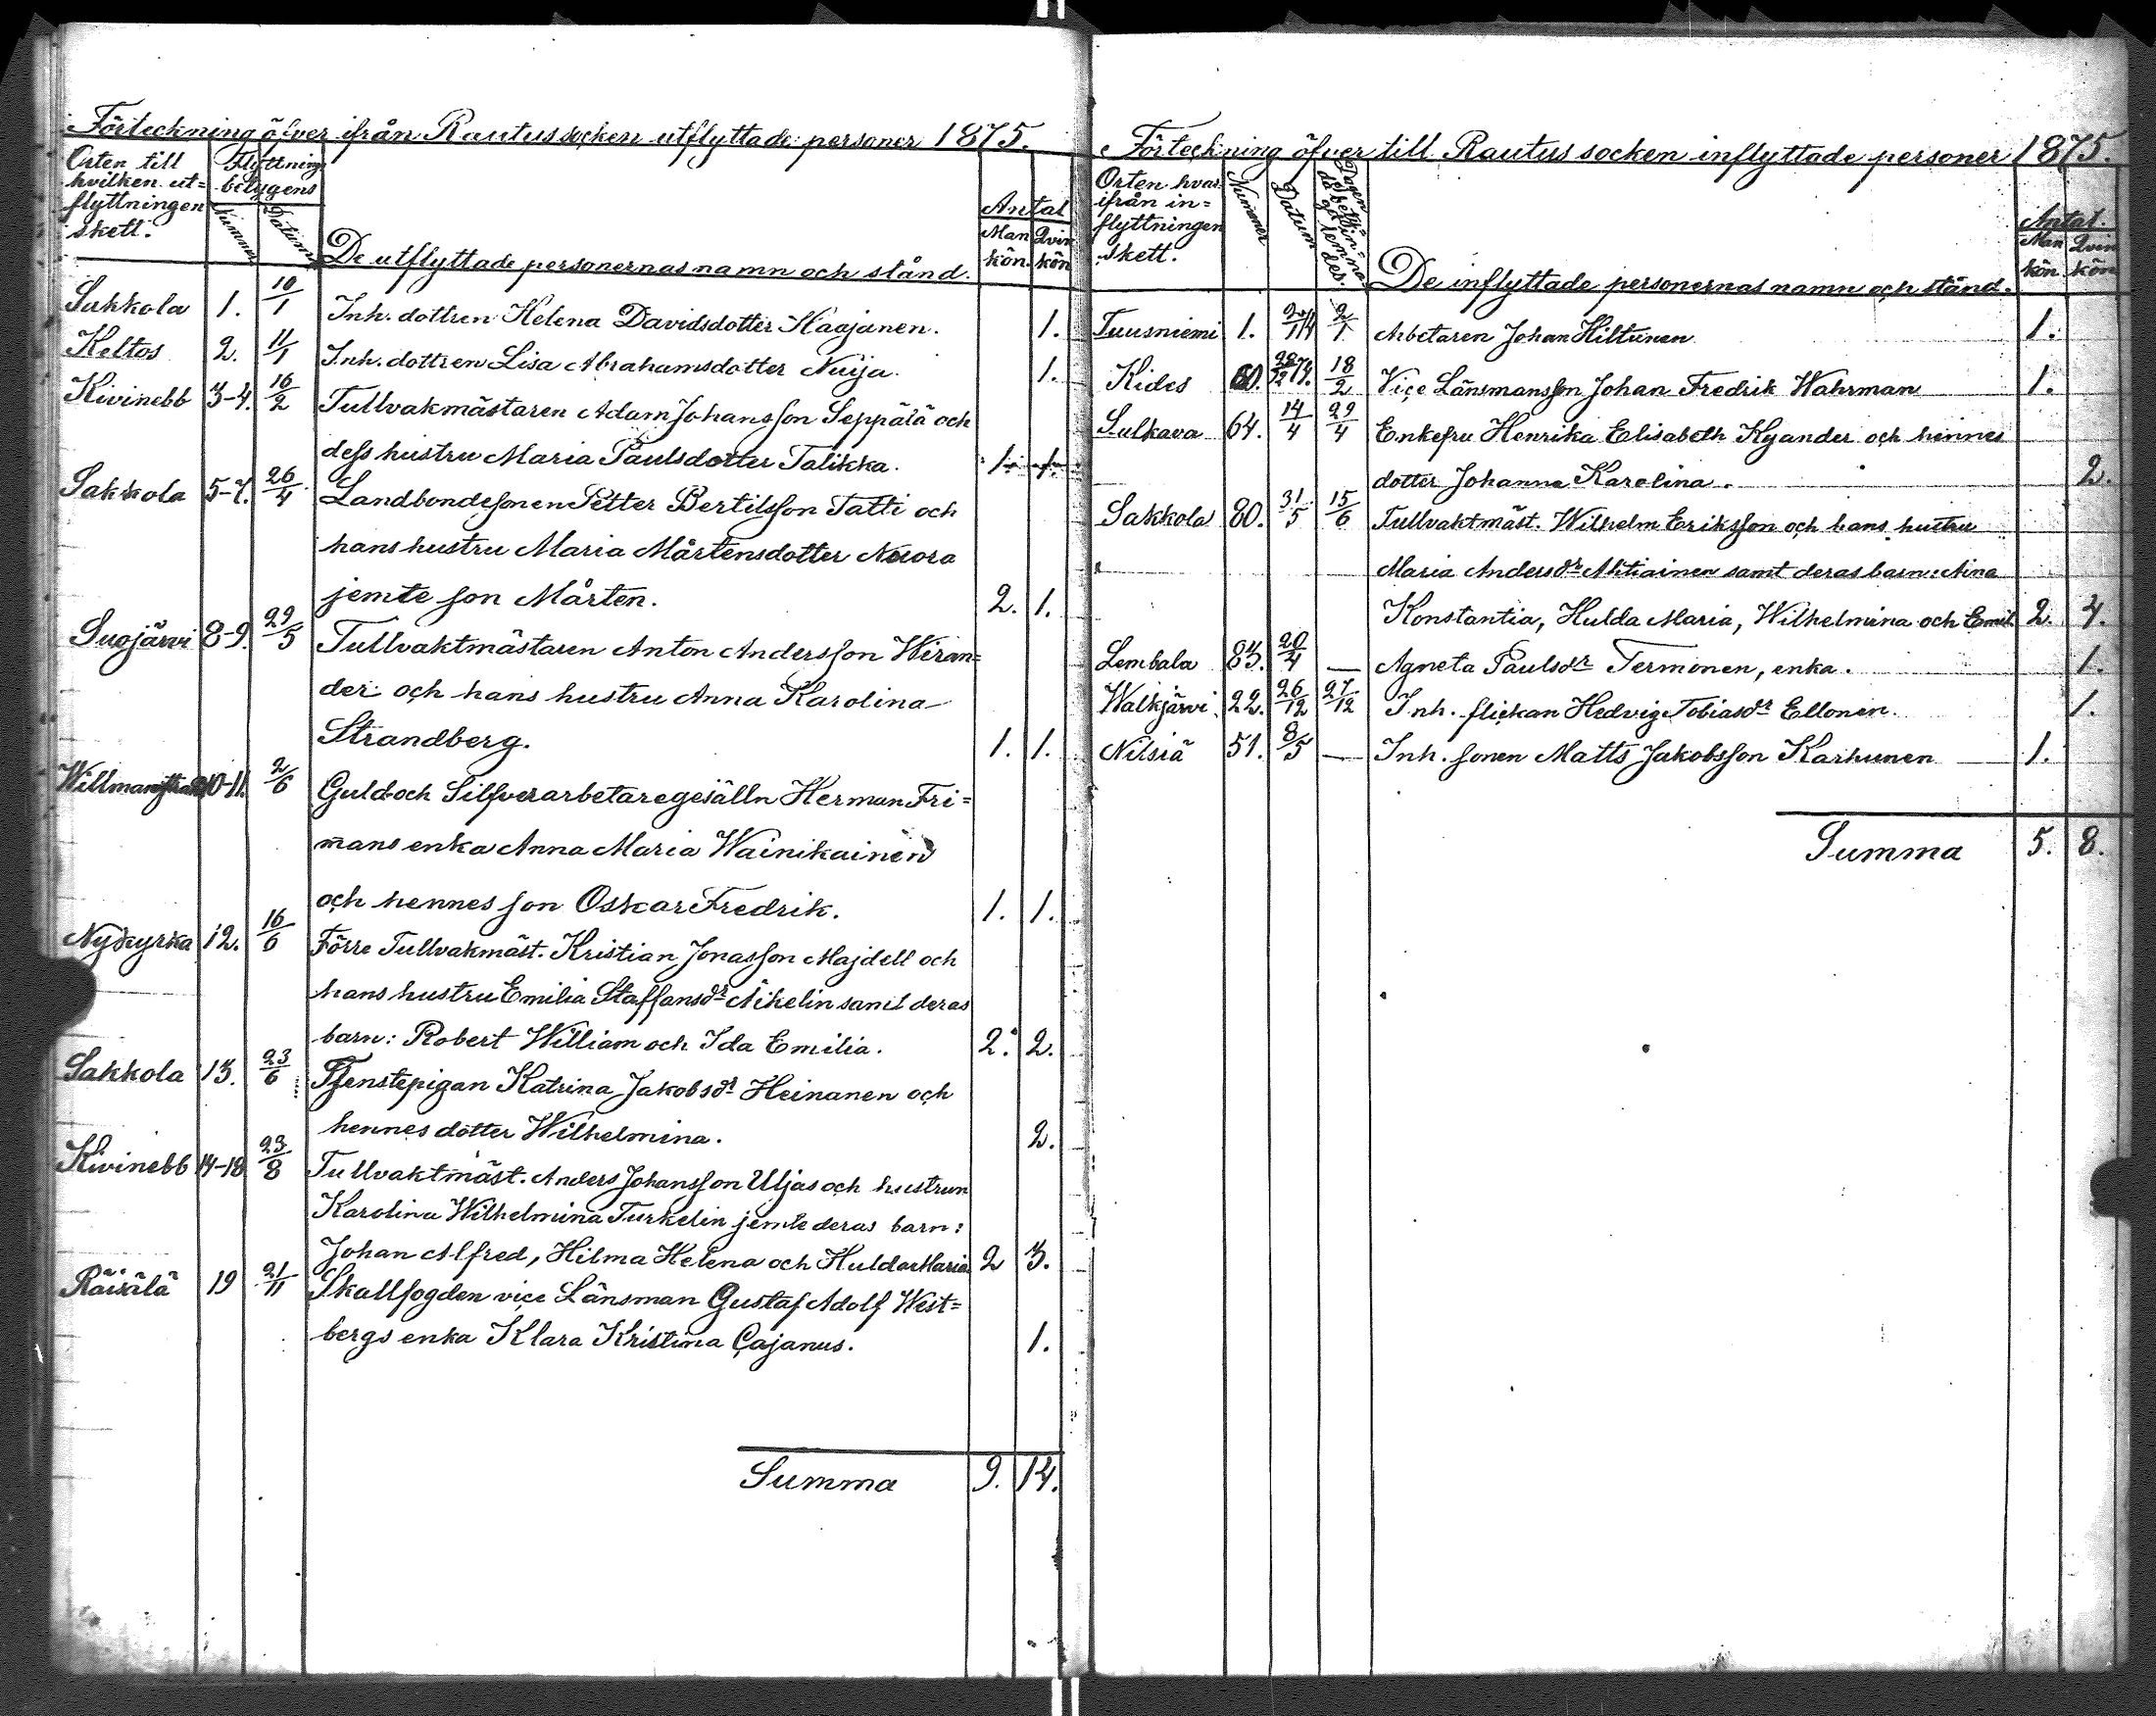 Förteckning öfver ifrån Rautus socken utflyttade personer 1875.
Orten till hvilken ut=flyttningen skett. Flyttnings betygens Nummer Datum De utflyttade personernas namn och stånd. Antal Man kön. Qvin kön
Sakkola 1. 10/1 Inh. dottren Helena Davidsdotter Haajanen. 1.
Keltos 2. 11/1 Inh. dottren Lisa Abrahamsdotter Nuija. 1.
Kivinebb 3-4. 16/2 Tullvakmästaren Adam Johansson Seppälä och
dess hustru Maria Paulsdotter Talikka. 1. 1.
Sakkola 5-7. 26/4 Landbondesonen Petter Bertilsson Tatti och
hans hustru Maria Mårtensdotter Nuora
jemte son Mårten. 2. 1.
Suojärvi 8-9. 29/5 Tullvaktmästaren Anton Andersson Wiran=
der och hans hustru Anna Karolina
Strandberg. 1. 1.
Willmanstrand 10-11. 2/6 Guld och Silfverarbetaregesälln Herman Fri=
mans enka Anna Maria Wainikainen
och hennes son Oskar Fredrik. 1. 1.
Nykyrka 12. 16/6 Förre Tullvakmäst. Kristian Jonasson Majdell och
hans hustru Emilia Staffansdr Mikelin samt deras
barn: Robert William och Ida Emilia. 2. 2.
Sakkola 13. 23/6 Tjenstepigan Katrina Jakobsdr Heinanen och
hennes dotter Wilhelmina. 2.
Kivinebb 14-18 23/8 Tullvaktmäst. Anders Johansson Uljas och hustrun
Karolina Wilhelmina Turkelin jemte deras barn:
Johan Alfred, Hilma Helena och Hulda Maria 2 3.
Räisälä 19 21/11 Skallfogden vice Länsman Gustaf Adolf West=
bergs enka Klara Kristina Cajanus. 1.
Summa 9. 14.
Förteckning öfver till Rautus socken inflyttade personer 1875.
Orten hvar ifrån in=flyttningen skett. Nummer Datum Dagen då betyg. inlemnades. De inflyttade personernas namn och stånd. Antal. Man kön Qvin kön
Tuusniemi 1. 2/1 2/1 Arbetaren Johan Hiltunen 1.
Kides 60. 28/12 74. 18/2 Vice Länsmansson Johan Fredrik Wahrman 1.
Sulkava 64. 14/4 29/4 Enkefru Henrika Elisabeth Kyander och hennes
dotter Johanna Karolina. 2.
Sakkola 80. 31/5 15/6 Tullvaktmäst. Wilhelm Eriksson och hans hustru
Maria Andersdr Ahtiainen samt deras barn: Aina
Konstantia, Hulda Maria, Wilhelmina och Emil 2. 4.
Lembala 83. 20/4 — Agneta Paulsdr Termonen, enka. 1.
Walkjärvi 22. 26/12 27/12 Inh. flickan Hedvig Tobiasdr Ellonen. 1.
Nilsiä 51. 8/5 — Inh. sonen Matts Jakobsson Karhunen 1.
Summa 5. 8.